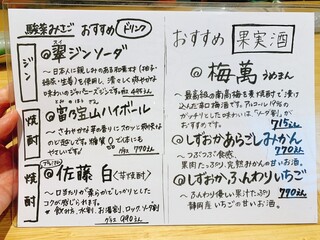 駿藁みさご おすすめ ドリンク
ジン
@翠ジンソーダ
スイ
〜日本人に親しみのある和素材(柚子・
緑茶・生姜)を使用し、清々しく爽やかな
味わいのジャパニーズジンです。 445えん
焼酎
@留乃宝山ハイボール
〜さわやかな芋の香りにスカッと爽快な
のど越しです。糖質0で体にも
やさしいです。 770えん
焼酎
@佐藤 白(芋焼酎)
〜口当たりが柔らかでしっかりとした
コクが感じられます。
飲み方、水割、お湯割、ロック、ソーダ割
990えん
おすすめ 果実酒
@梅萬 うめまん
〜最高級の南高梅を麦焼酎で漬け
込んだ辛口梅酒です。アルコール19%の
ガッチリとした味わいは、「ソーダ割」が
おすすめです。 715えん
@しずおかあらごしみかん
〜つぶつぶ食感、 770えん
果肉たっぷり、完熟みかんの甘いお酒。
@しずおかふんわりいちご
〜ふんわり優しい果汁たっぷり 770えん
静岡産いちごの甘いお酒。